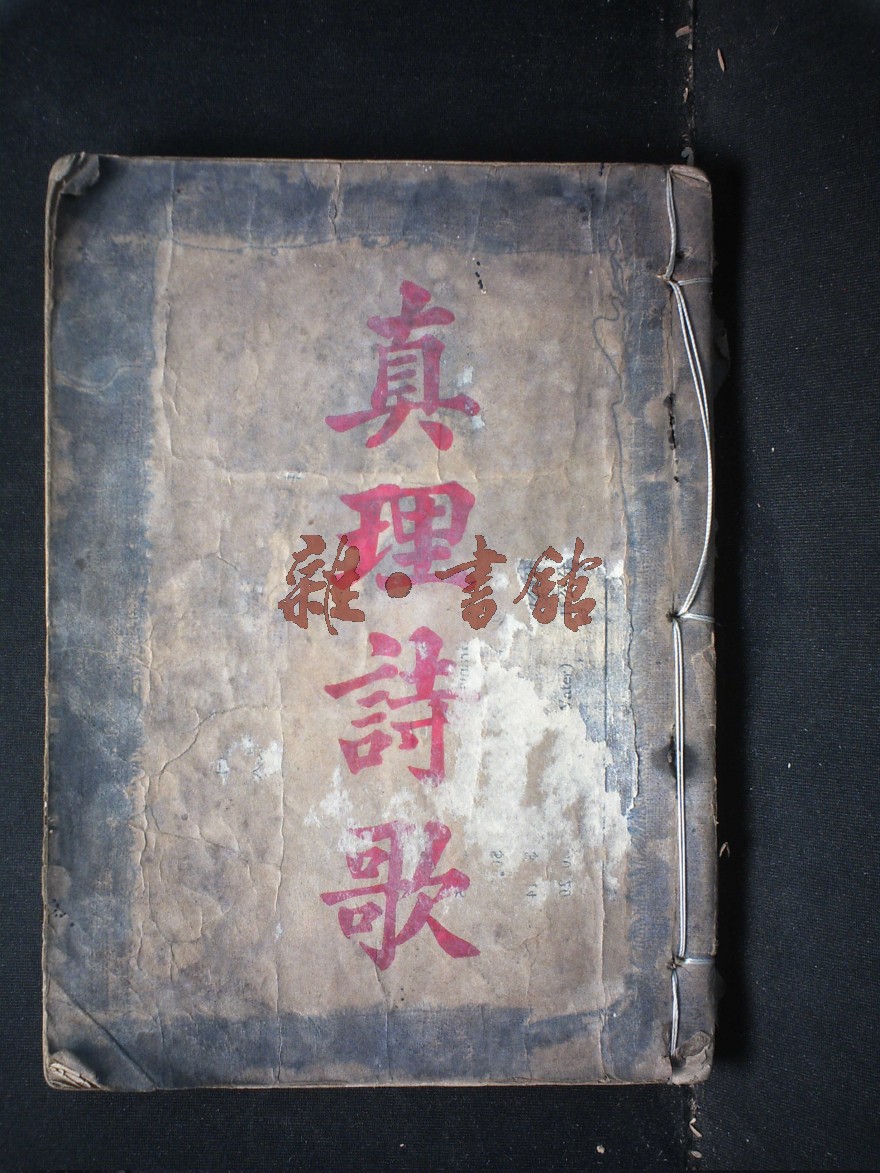 真理詩歌
雜·書館
Vater)